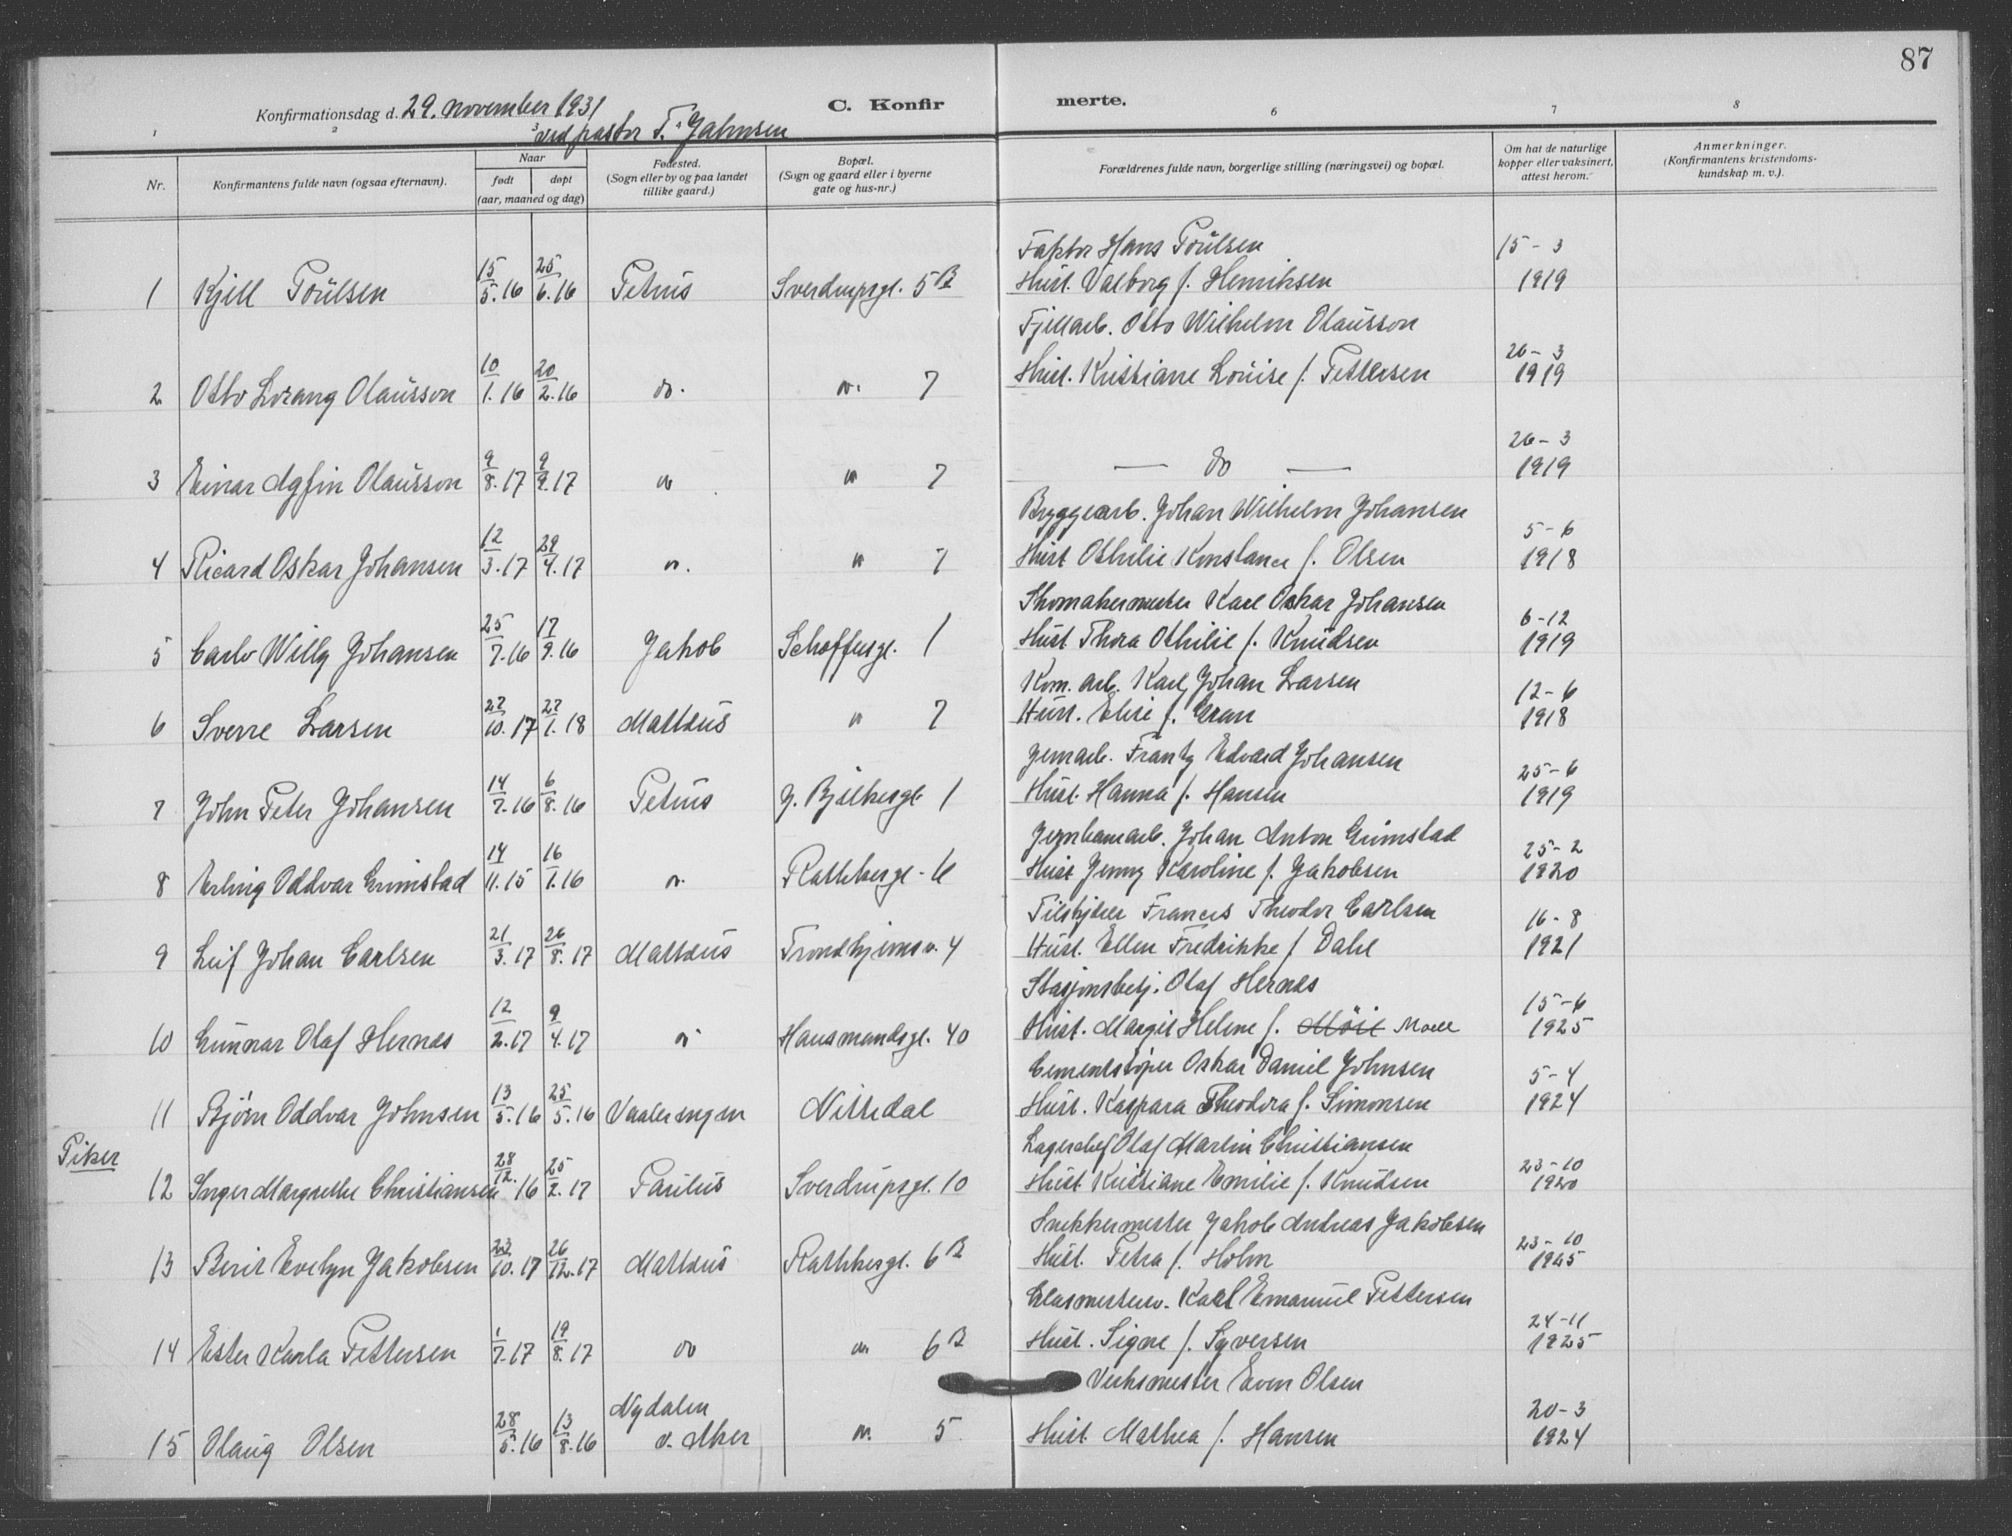 87
Konfirmationsdag d. 29. november 1931
ved pastor T. Jahnsen
C. Konfirmerte.
1 2 3 6 7 8
Nr. Konfirmantens fulde navn (ogsaa efternavn). Naar født døpt (aar, maaned og dag) Fødested. (Sogn eller by og paa landet tillike gaard.) Bopæl. (Sogn og gaard eller i byerne gate og hus-nr.) Forældrenes fulde navn, borgerlige stilling (næringsvei) og bopæl. Om hat de naturlige kopper eller vaksinert, attest herom. Anmerkninger. (Konfirmantens kristendomskundskap m. v.).
Faktor Hans Poulsen 15-3
1 Kjell Poulsen 15/5.16 25/6.16 Petrus Sverdrupsgt. 5B Hust. Valborg f. Henriksen 1919
Fjellarb. Otto Wilhelm Olausson
2 Otto Lorang Olausson 10/1.16 20/2.16 do. " 7 Hust. Kristiane Louise f. Pettersen 26-3 1919
3 Einar Agfin Olausson 9/8.17 9/9.17 " " 7 — do — 26-3 1919
Bryggearb. Johan Wilhelm Johansen
4 Ricard Oskar Johansen 12/3.17 29/4.17 " " 7 Hust Othilie Konstance f. Olsen 5-6 1918
Skomakermester Karl Oskar Johansen
5 Carlo Willy Johansen 25/7.16 17/9.16 Jakob Schoffusgt. 1 Hust Thora Othilie f. Knudsen 6-12 1919
Kom. arb. Karl Johan Larsen
6 Sverre Larsen 27/10.17 27/1.18 Mattæus " 7 Hust. Elise f. Gran 12-6 1918
Jernarb. Frantz Edvard Johansen
7 John Peter Johansen 14/7.16 6/8.16 Petrus J. Bjelkesgt 1 Hust. Hanna f. Hansen 25-6 1919
Jernbanearb. Johan Anton Grimstad
8 Erling Oddvar Grimstad 14/11.15 16/1.16 " Rathkesgt. 16 Hust Jenny Karoline f. Jakobsen 25-2 1920
Tilskjærer Francis Theodor Carlsen
9 Leif Johan Carlsen 21/3.17 26/8.17 Mattæus Trondhjemsv. 4 Hust. Ellen Fredrikke f. Dahl 16-8 1921
Stasjonsbetj. Olaf Hernes
10 Gunnar Olaf Hernes 12/2.17 9/4.17 " Hausmandsgt. 40 Hust. Margit Helene f. Moe 15-6 1925
Cementstøper Oskar Daniel Johnsen
11 Bjørn Oddvar Johnsen 13/5.16 25/5.16 Vaalerengen Nittedal Hust. Kaspara Theodora f. Simonsen 5-4 1924
Piker
Lagerchef Olaf Martin Christiansen
12 Inger Margrethe Christiansen 28/12.16 25/2.17 Paulus Sverdrupsgt. 10 Hust. Kristiane Emilie f. Knudsen 23-10 1920
Snekkermester Jakob Andreas Jakobsen
13 Berit Evelyn Jakobsen 23/10.17 26/12.17 Mattæus Rathkesgt. 6B Hust. Petra f. Holm 23-10 1925
Glasmestersv. Karl Emanuel Pettersen
14 Ester Karla Pettersen 1/7.17 19/8.17 do " 6B Hust. Signe f. Syversen 24-11 1925
Verksmester Even Olsen
15 Olaug Olsen 28/5.16 13/8.16 Nydalen v. Aker " 5 Hust. Mathea f. Hansen 20-3 1924